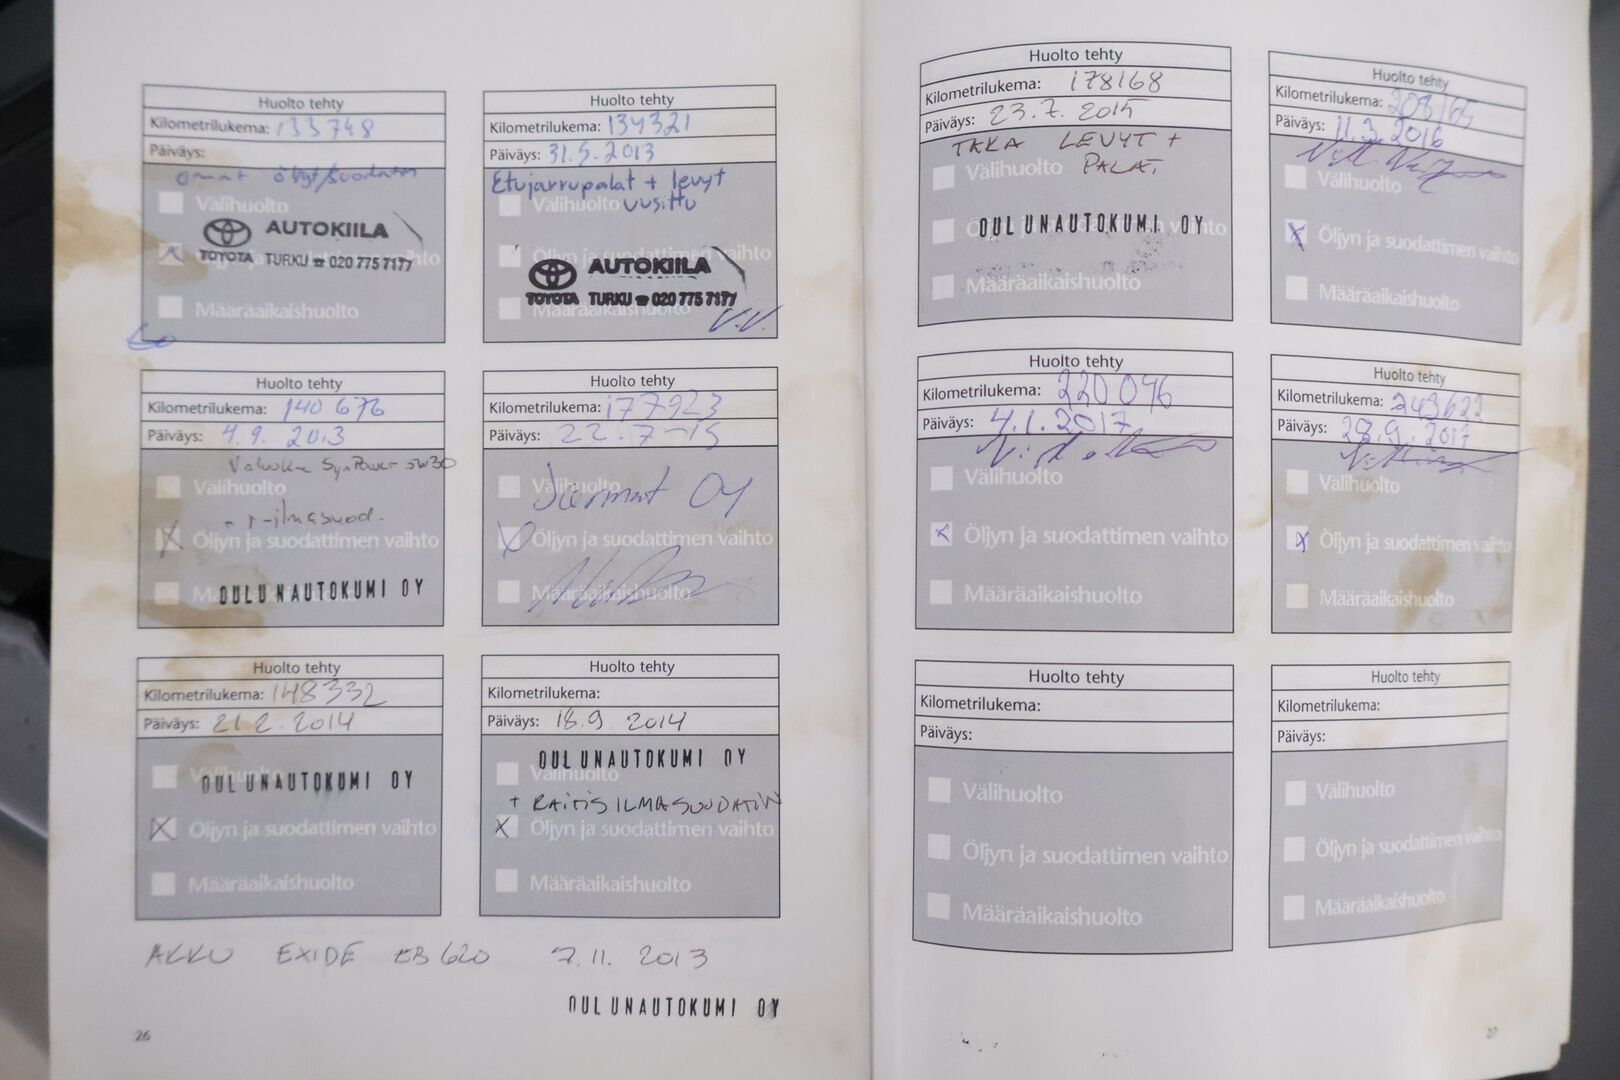 Huolto tehty
Kilometrilukema: 133748
Päiväys:
omat öljyt/suodatin
Välihuolto
AUTOKIILA
TOYOTA TURKU ☎ 020 775 7177
Määräaikaishuolto
Huolto tehty
Kilometrilukema: 134321
Päiväys: 31.5.2013
Etujarrupalat + levyt
Välihuolto uusittu
Öljyn ja suodattimen vaihto
AUTOKIILA
TOYOTA TURKU ☎ 020 775 7177
Määräaikaishuolto
V.V.
Huolto tehty
Kilometrilukema: 140 676
Päiväys: 4.9. 2013
SynPower 5W30
Välihuolto
- r-ilmasuod.
Öljyn ja suodattimen vaihto
OULUNAUTOKUMI OY
Huolto tehty
Kilometrilukema: 177923
Päiväys: 22.7-15
Välihuolto
OY
Öljyn ja suodattimen vaihto
Määräaikaishuolto
Huolto tehty
Kilometrilukema: 148332
Päiväys: 21.2.2014
Välihuolto
OULUNAUTOKUMI OY
Öljyn ja suodattimen vaihto
Määräaikaishuolto
Huolto tehty
Kilometrilukema:
Päiväys: 18.9 2014
OULUNAUTOKUMI OY
Välihuolto
+ RAITISILMASUODATIN
Öljyn ja suodattimen vaihto
Määräaikaishuolto
AKKU EXIDE EB620 7.11. 2013
OULUNAUTOKUMI OY
26
Huolto tehty
Kilometrilukema: 178168
Päiväys: 23.7.2015
TAKA LEVYT +
PALAT
Välihuolto
OULUNAUTOKUMI OY
Määräaikaishuolto
Huolto tehty
Kilometrilukema: 208165
Päiväys: 11.3.2016
Välihuolto
Öljyn ja suodattimen vaihto
Määräaikaishuolto
Huolto tehty
Kilometrilukema: 220096
Päiväys: 4.1.2017
Välihuolto
Öljyn ja suodattimen vaihto
Määräaikaishuolto
Huolto tehty
Kilometrilukema: 243622
Päiväys:
Välihuolto
Öljyn ja suodattimen vaihto
Määräaikaishuolto
Huolto tehty
Kilometrilukema:
Päiväys:
Välihuolto
Öljyn ja suodattimen vaihto
Määräaikaishuolto
Huolto tehty
Kilometrilukema:
Päiväys:
Välihuolto
Öljyn ja suodattimen vaihto
Määräaikaishuolto
27